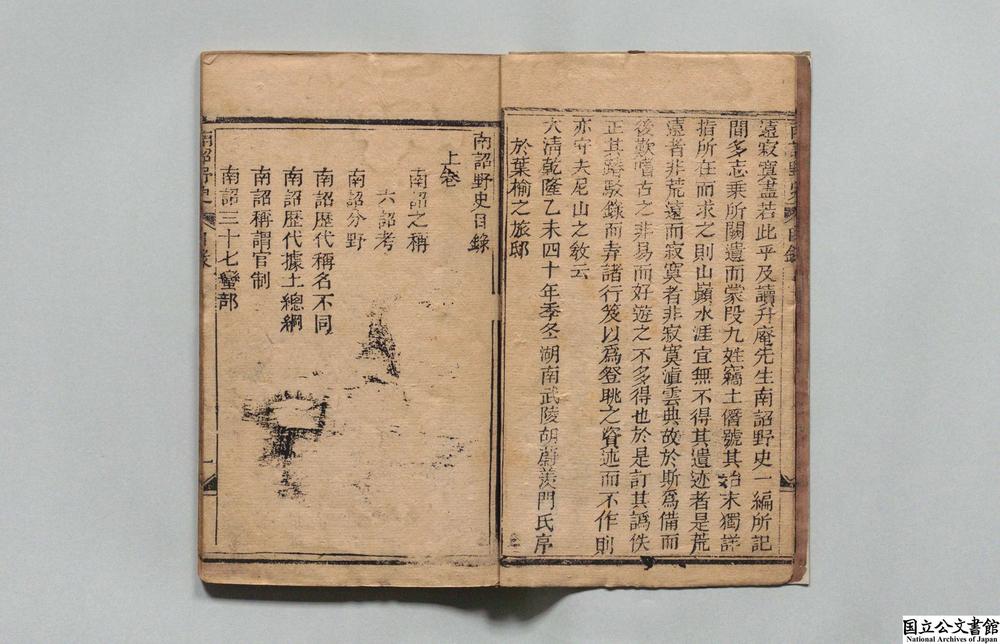 遠寂寞盡若此乎及讀升庵先生南詔野史一編所記
間多志乘所闕遺而蒙段九姓竊土僭號其始末獨詳
指所在而求之則山巔水涯宜無不得其遺迹者是荒
遠者非荒遠而寂寞者非寂寞滇雲典故於斯爲備而
後歎嗜古之非易而好遊之不多得也於是訂其譌佚
正其踳駁錄而弆諸行笈以爲登眺之資述而不作則
亦守夫尼山之教云
大清乾隆乙未四十年季冬湖南武陵胡蔚羨門氏序
於葉榆之旅邸
南詔野史目錄
上卷
南詔之稱
六詔考
南詔分野
南詔歷代稱名不同
南詔歷代據土總綱
南詔稱謂官制
南詔三十七蠻部
南詔野史
目錄
一
国立公文書館
National Archives of Japan